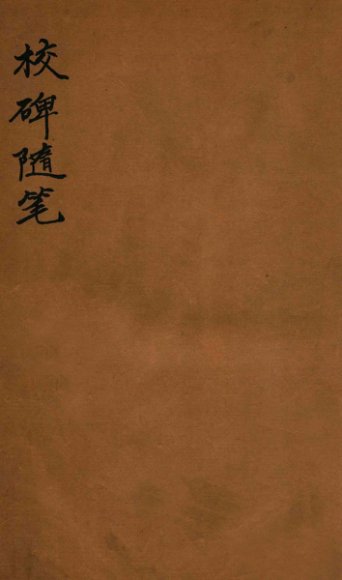 校碑隨笔